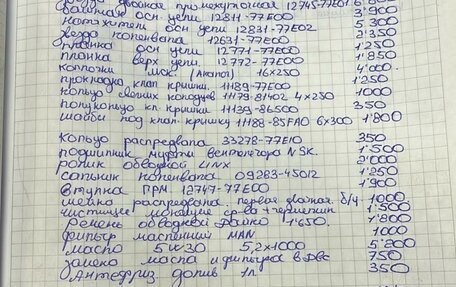 звезда двойная промежуточная 12745-77E01 6'800
башмак осн. цепи 12811-77E00 3'900
натяжитель осн цепи 12831-77E02 5'300
звезда коленвала 12631-77E00 2'350
планка осн цепи 12771-77E00 1'250
планка верх цепи. 12772-77E00 1'850
колпачки мск. (Япония) 16x250 4'000
прокладка клап крышки. 11189-77E00 1'250
кольцо свечных колодцев 11179-81402 4x250 1000
полукольцо кл. крышки 11139-86500 350
шайбы под клап. крышку 11188-85FA0 6x300 1'800
Кольцо распредвала 33278-77E10 350
подшипник муфты вентилятора NSK. 1'500
ролик обводной LINX 2'000
сальник коленвала 09283-45012 1'250
втулка ПРМ. 12747-77E00 1'900
шейка распредвала. первая двойная. б/у- 1000
чистящие моющие ср-ва + герметик 1'500
ремень обводной Дайко 1'650. 1'800
фильтр маслянный MAN 1000
масло 5W30 5,2x1000 5'200
замена масла и фильтра в ДВС 750
Антифриз долив 1л 350